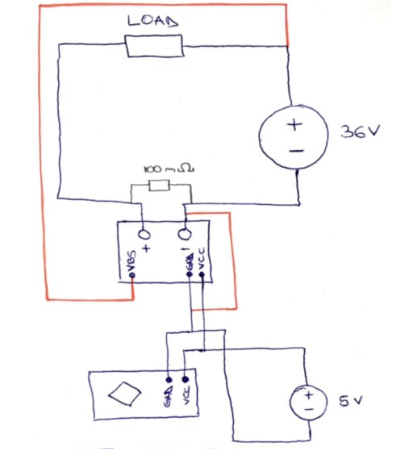 LOAD
+
36V
−
100 mΩ
+
−
VBS
GND
VCC
GND
VCC
+
5V
−